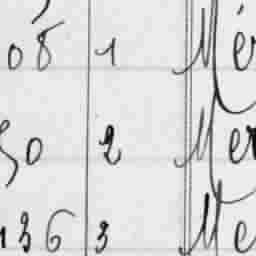 08 1 Mér
50 2 Mer
136 3 Me